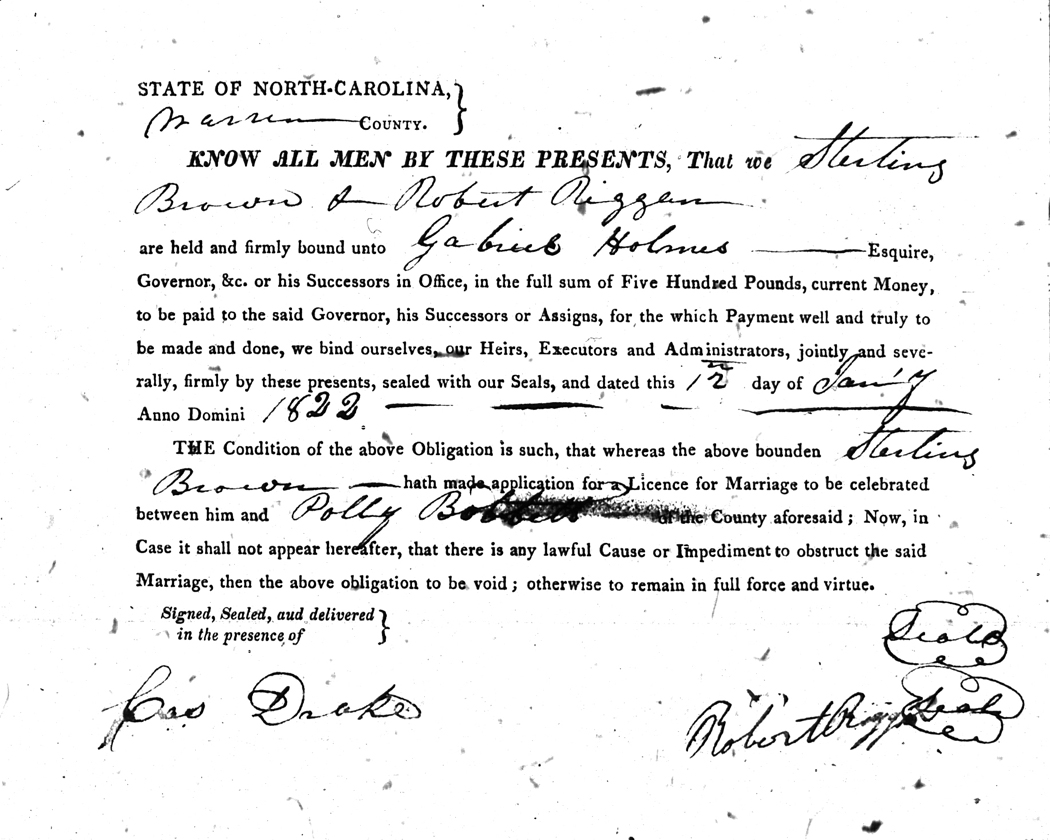 STATE OF NORTH-CAROLINA,
Warren COUNTY.
KNOW ALL MEN BY THESE PRESENTS, That we Sterling
Brown & Robert Riggan
are held and firmly bound unto Gabriel Holmes Esquire,
Governor, &c. or his Successors in Office, in the full sum of Five Hundred Pounds, current Money,
to be paid to the said Governor, his Successors or Assigns, for the which Payment well and truly to
be made and done, we bind ourselves, our Heirs, Executors and Administrators, jointly and seve-
rally, firmly by these presents, sealed with our Seals, and dated this day of Jan'y
Anno Domini 1822
THE Condition of the above Obligation is such, that whereas the above bounden Sterling
Brown hath made application for a Licence for Marriage to be celebrated
between him and Polly Bobbett of the County aforesaid; Now, in
Case it shall not appear hereafter, that there is any lawful Cause or Impediment to obstruct the said
Marriage, then the above obligation to be void; otherwise to remain in full force and virtue.
Signed, Sealed, aud delivered
in the presence of
Seal
Drake
Robert Riggan Seal